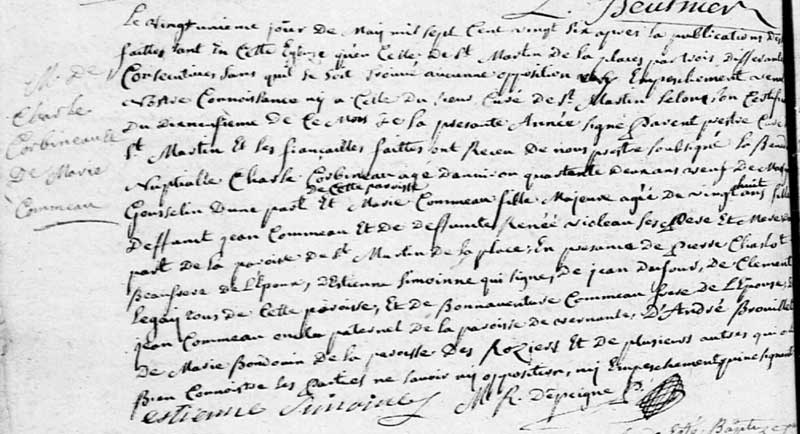 Beusnier
Le vingtunieme jour de May mil sept Cent vingt Six apres la publications des
faittes tant en Cette Eglise qu'en Celle de St Martin de la places par trois differants
Consecutives Sans quil se soit trouvé aucunne opposition Empeschement venu
Nostre Connoissance ny a Celle du sieur Curé de St. Martin Selon son Certifi
Du Dixneufieme de Ce Mois de la presante Année signé Parent prestre Curé
St Martin Et les fiançailles faittes ont Receu de nous prestre soubsigné la Bened
Nuptialle Charle Corbineau agé danviron quarente deux ans veuf de
de Cette paroisse
Gousselin Dune part Et Marie Commeau fille Majeure agée de vingt huit ans fille
Deffunt jean Commeau Et de deffuncte Renée violeau ses Pere Et Mere
part de la paroisse de St Martin de la place; En presence de Pierre Charlot
Beaufrere de L'Epoux, d'Estienne Simoinne qui signe, de jean Dufour, De Clement
Legay tous de Cette paroisse, Et de Bonnaventure Commeau frere de L'Epouse,
jean Commeau oncle paternel de la paroisse de vernante, D'André Brouillet
de Marie Boudouin de la paroisse Des Roziers Et de plusieurs autres qui
Bien Connoistre les parties ne savoir ny opposition, ny Empeschement qui ne signent
estienne Simoine M. R. D'epeigne
M. De
Charle
Corbineault
De Marie
Commeau